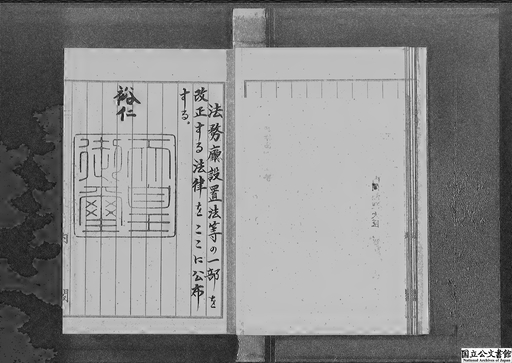 法務廳設置法等の一部を
改正する法律をここに公布
する。
裕仁
天皇御璽
国立公文書館
National Archives of Japan